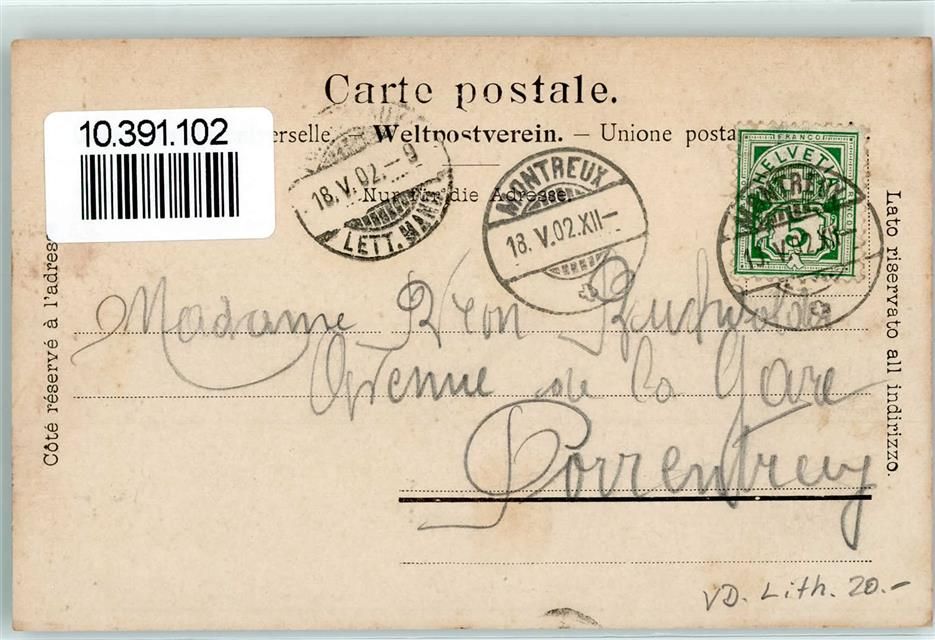 Carte postale.
10.391.102
erselle. – Weltpostverein. – Unione posta
Nur für die Adresse.
18.V.02.–9
LETT.
MONTREUX
18.V.02.XII–
FRANCO
HELVETIA
5
Côté réservé à l'adres
Lato riservato all indirizzo.
Madame Léon
Avenue de la Gare
Porrentruy
VD. Lith. 20.-